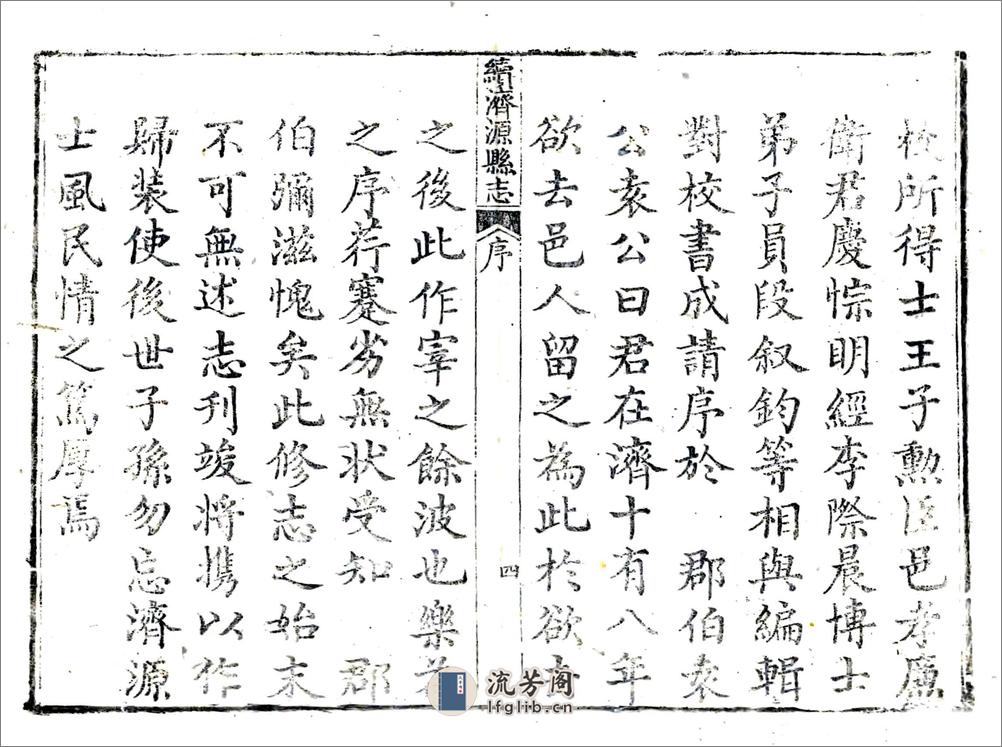 校所得士王子勲臣邑孝廉
衛君慶悰明經李際晨博士
弟子員段叙鈞等相與編輯
對校書成請序於　郡伯袁
公袁公曰君在濟十有八年
欲去邑人留之為此於欲去
續濟源縣志
序
四
之後此作宰之餘波也樂為
之序荇蹇劣無狀受知　郡
伯彌滋愧矣此修志之始末
不可無述志刊竣将携以作
歸装使後世子孫勿忘濟源
士風民情之篤厚焉
流芳阁
lfglib.cn